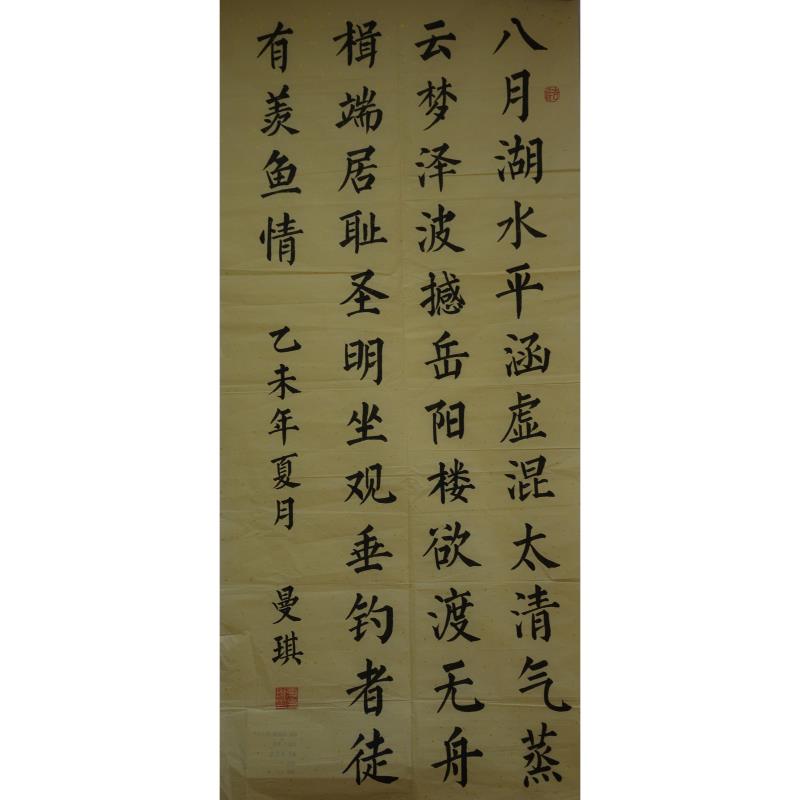 八月湖水平涵虚混太清气蒸
云梦泽波撼岳阳楼欲渡无舟
楫端居耻圣明坐观垂钓者徒
有羡鱼情
乙未年夏月
曼琪